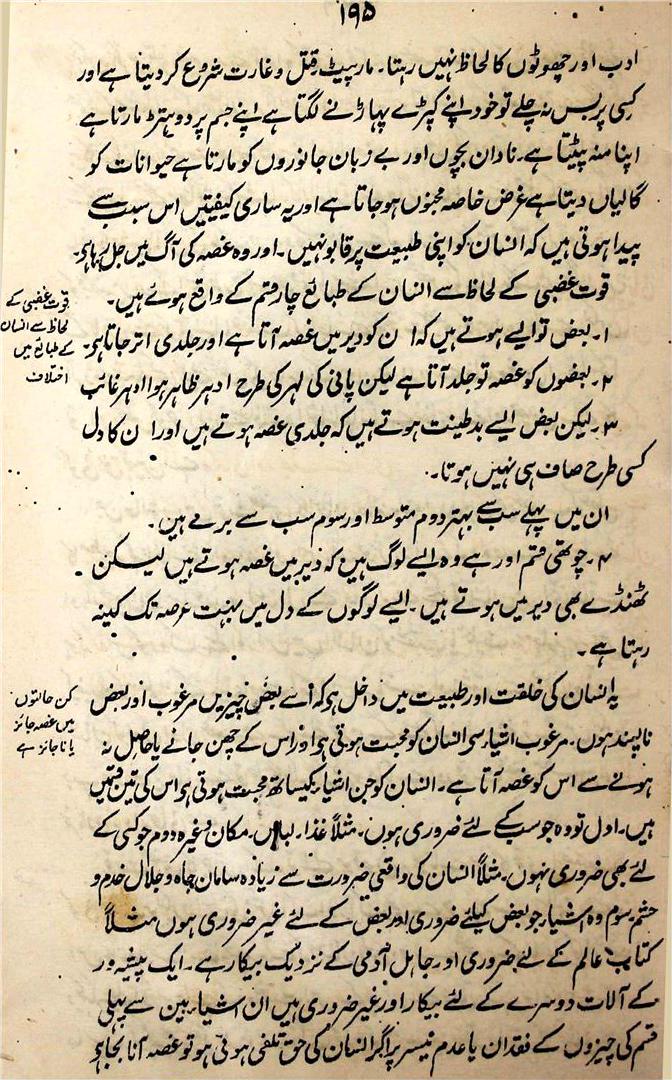 ۱۹۵
ادب اور چھوٹوں کا لحاظ نہیں رہتا۔ مارپیٹ قتل و غارت شروع کر دیتا ہے اور
کسی پر بس نہ چلے تو خود اپنے کپڑے پھاڑنے لگتا ہے اپنے جسم پر دوہتڑ مارتا ہے
اپنا منہ پیٹتا ہے۔ نادان بچوں اور بے زبان جانوروں کو مارتا ہے حیوانات کو
گالیاں دیتا ہے غرض خاصہ مجنوں ہو جاتا ہے اور یہ ساری کیفیتیں اس سبب سے
پیدا ہوتی ہیں کہ انسان کو اپنی طبیعت پر قابو نہیں۔ اور وہ غصہ کی آگ میں جل رہا ہے۔
قوت غضبی کے لحاظ سے انسان کے طبائع چار قسم کے واقع ہوئے ہیں۔
قوت غضبی کے
لحاظ سے انسان
کے طبائع میں
اختلاف
۱۔ بعض تو ایسے ہوتے ہیں کہ ان کو دیر میں غصہ آتا ہے اور جلدی اتر جاتا ہے۔
۲۔ بعضوں کو غصہ تو جلد آتا ہے لیکن پانی کی لہر کی طرح ادہر ظاہر ہوا ادہر غائب
۳۔ لیکن بعض ایسے بدطینت ہوتے ہیں کہ جلدی غصہ ہوتے ہیں اور ان کا دل
کسی طرح صاف ہی نہیں ہوتا۔
ان میں پہلے سب سے بہتر دوم متوسط اور سوم سب سے برے ہیں۔
۴۔ چوتھی قسم اور ہے وہ ایسے لوگ ہیں کہ دیر میں غصہ ہوتے ہیں لیکن
ٹھنڈے بھی دیر میں ہوتے ہیں۔ ایسے لوگوں کے دل میں بہت عرصہ تک کینہ
رہتا ہے۔
یہ انسان کی خلقت اور طبیعت میں داخل ہے کہ اُسے بعض چیزیں مرغوب اور بعض
کن حالتوں
میں غصہ جائز
یا ناجائز ہے
ناپسند ہوں۔ مرغوب اشیاء سے انسان کو محبت ہوتی ہے اور اس کے چھن جانے یا حاصل نہ
ہونے سے اس کو غصہ آتا ہے۔ انسان کو جن اشیاء کیساتھ محبت ہوتی ہے اس کی تین قسمیں
ہیں۔ اول تو وہ جو سب کے لئے ضروری ہوں۔ مثلاً غذا۔ لباس۔ مکان وغیرہ دوم جو کسی کے
لئے بھی ضروری نہوں۔ مثلاً انسان کی واقعی ضرورت سے زیادہ سامان جاہ و جلال خدم و
حشم سوم وہ اشیاء جو بعض کیلئے ضروری اور بعض کے لئے غیر ضروری ہوں مثلاً
کتاب عالم کے لئے ضروری اور جاہل آدمی کے نزدیک بیکار ہے۔ ایک پیشہ ور
کے آلات دوسرے کے لئے بیکار اور غیر ضروری ہیں ان اشیاء میں سے پہلی
قسم کی چیزوں کے فقدان یا عدم تیسر پر اگر انسان کی حق تلفی ہوتی ہو تو غصہ آنا بجا ہے